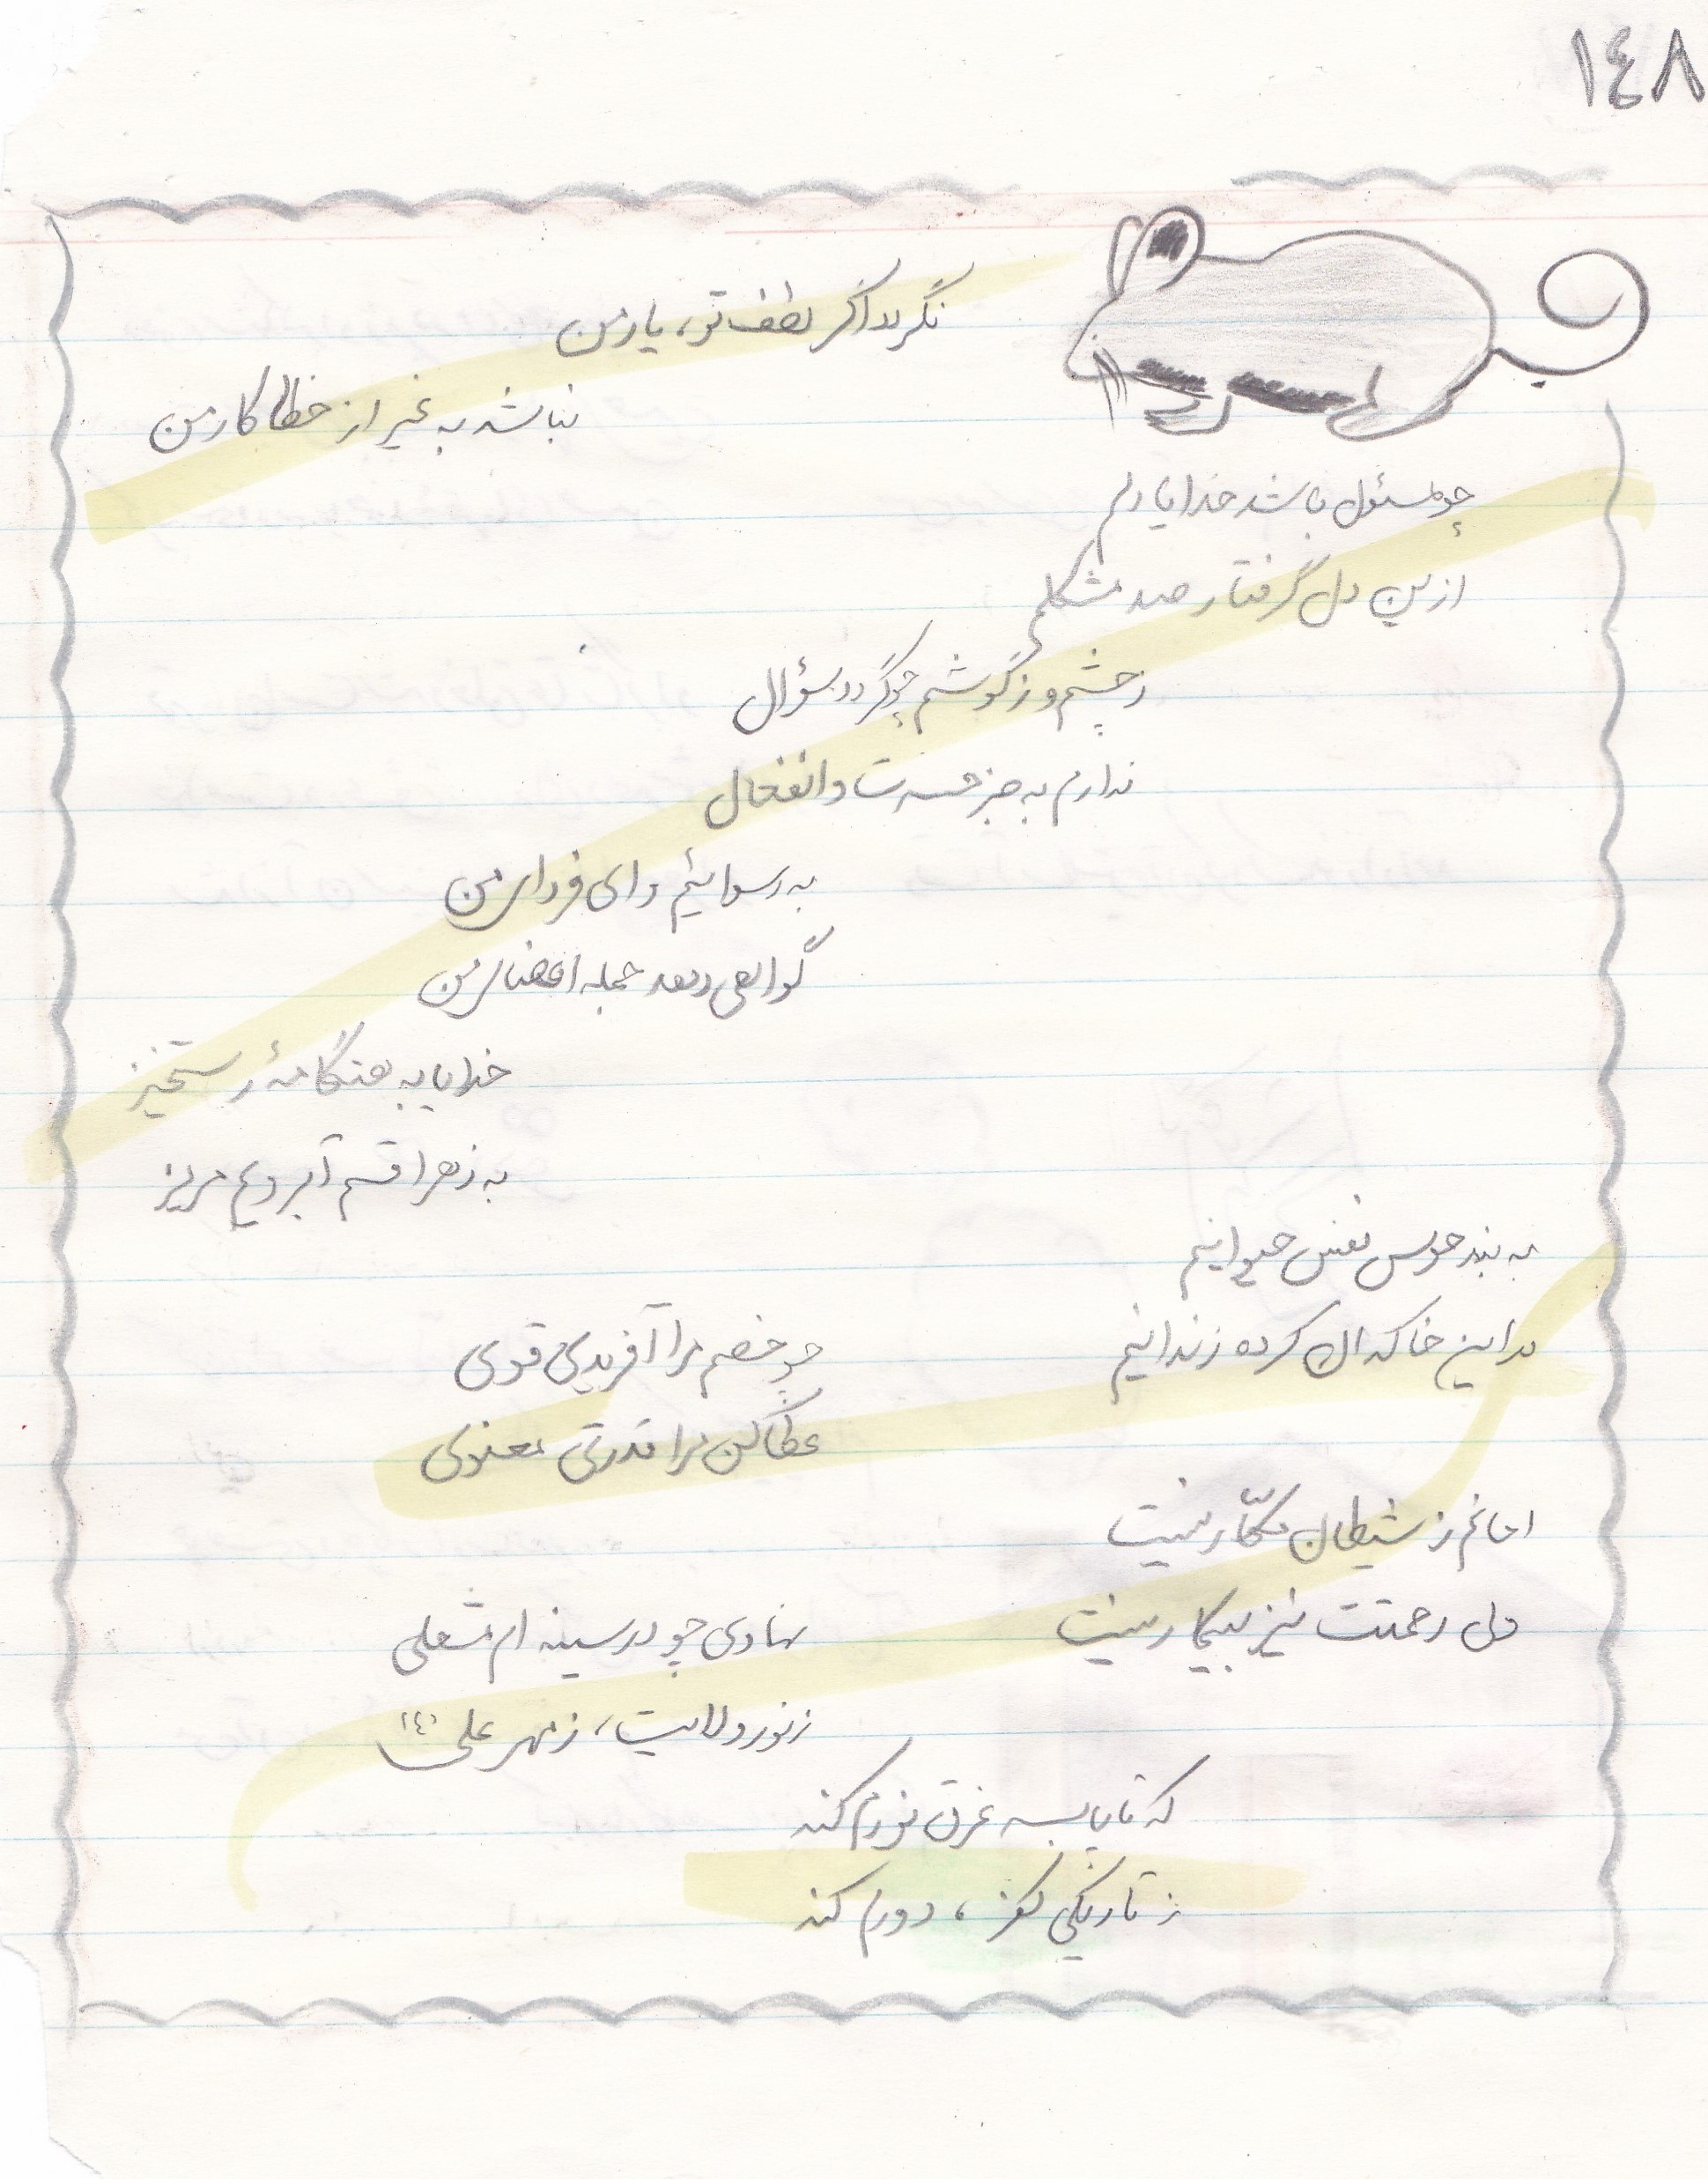 ١٤٨
نگردد اگر لطف تو، یار من
نباشد به غیر از خطا کار من
چو مسئول باشد خدایا دلم
ازین دل گرفتار صد مشکلم
ز چشم و ز گوشم چو گردد سؤال
ندارم به جز حسرت و انفعال
به رسوائیم وای فردای من
گواهی دهد جمله اعضای من
خدایا به هنگامهٔ رستخیز
به زهرا قسم آبرویم مریز
به بند هوس نفس حیوانیم
در این خاکدان کرده زندانیم
چو خصم مرا آفریدی قوی
عطا کن مرا قدرتی معنوی
امانم ز شیطان مکّار نیست
ولی رحمتت نیز بیکار نیست
نهادی چو در سینه‌ام مشعلی
ز نور ولایت، ز مهر علی
که تابا بسه غرق نورم کند
ز تاریکی کفر، دورم کند